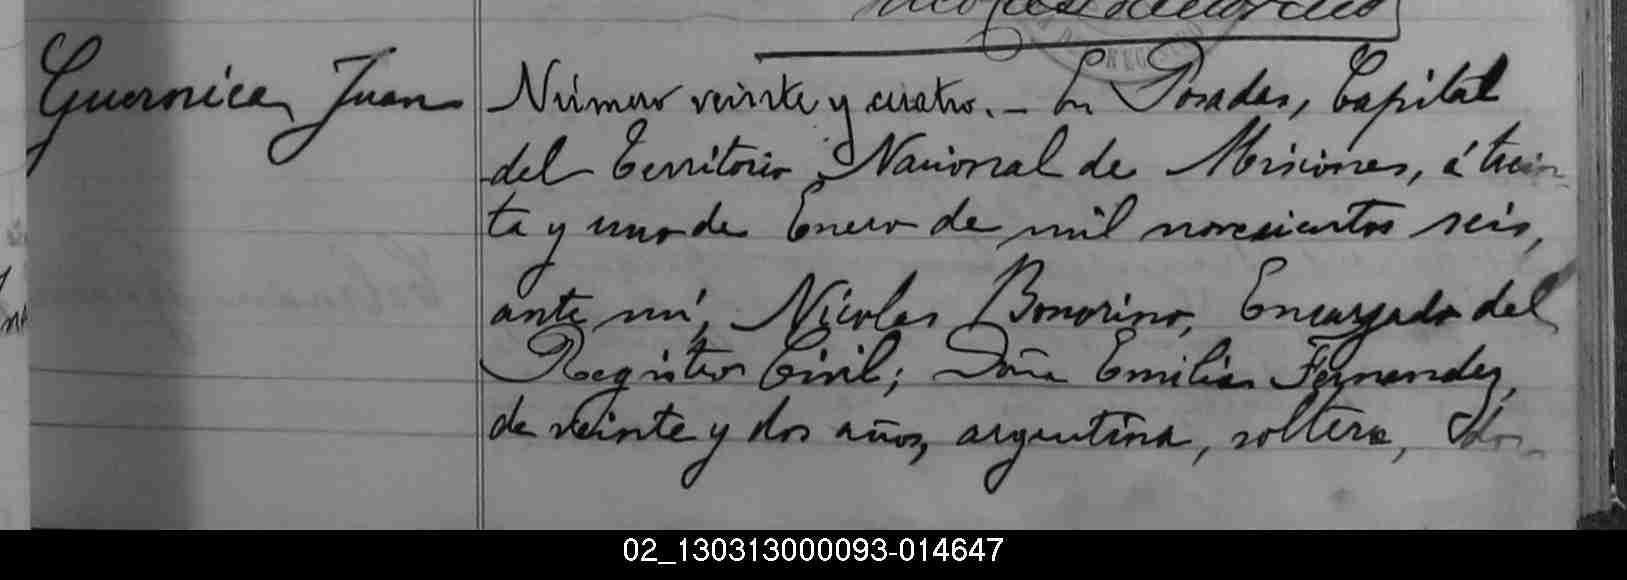 Guernica, Juan
Número veinte y cuatro.- En Posadas, Capital
del Territorio Nacional de Misiones, á trein-
ta y uno de Enero de mil novesientos seis,
ante mí, Nicolas Bonorino, Encargado del
Registro Civil; Doña Emilia Fernandez,
de veinte y dos años, argentina, soltera, do-
02_130313000093-014647